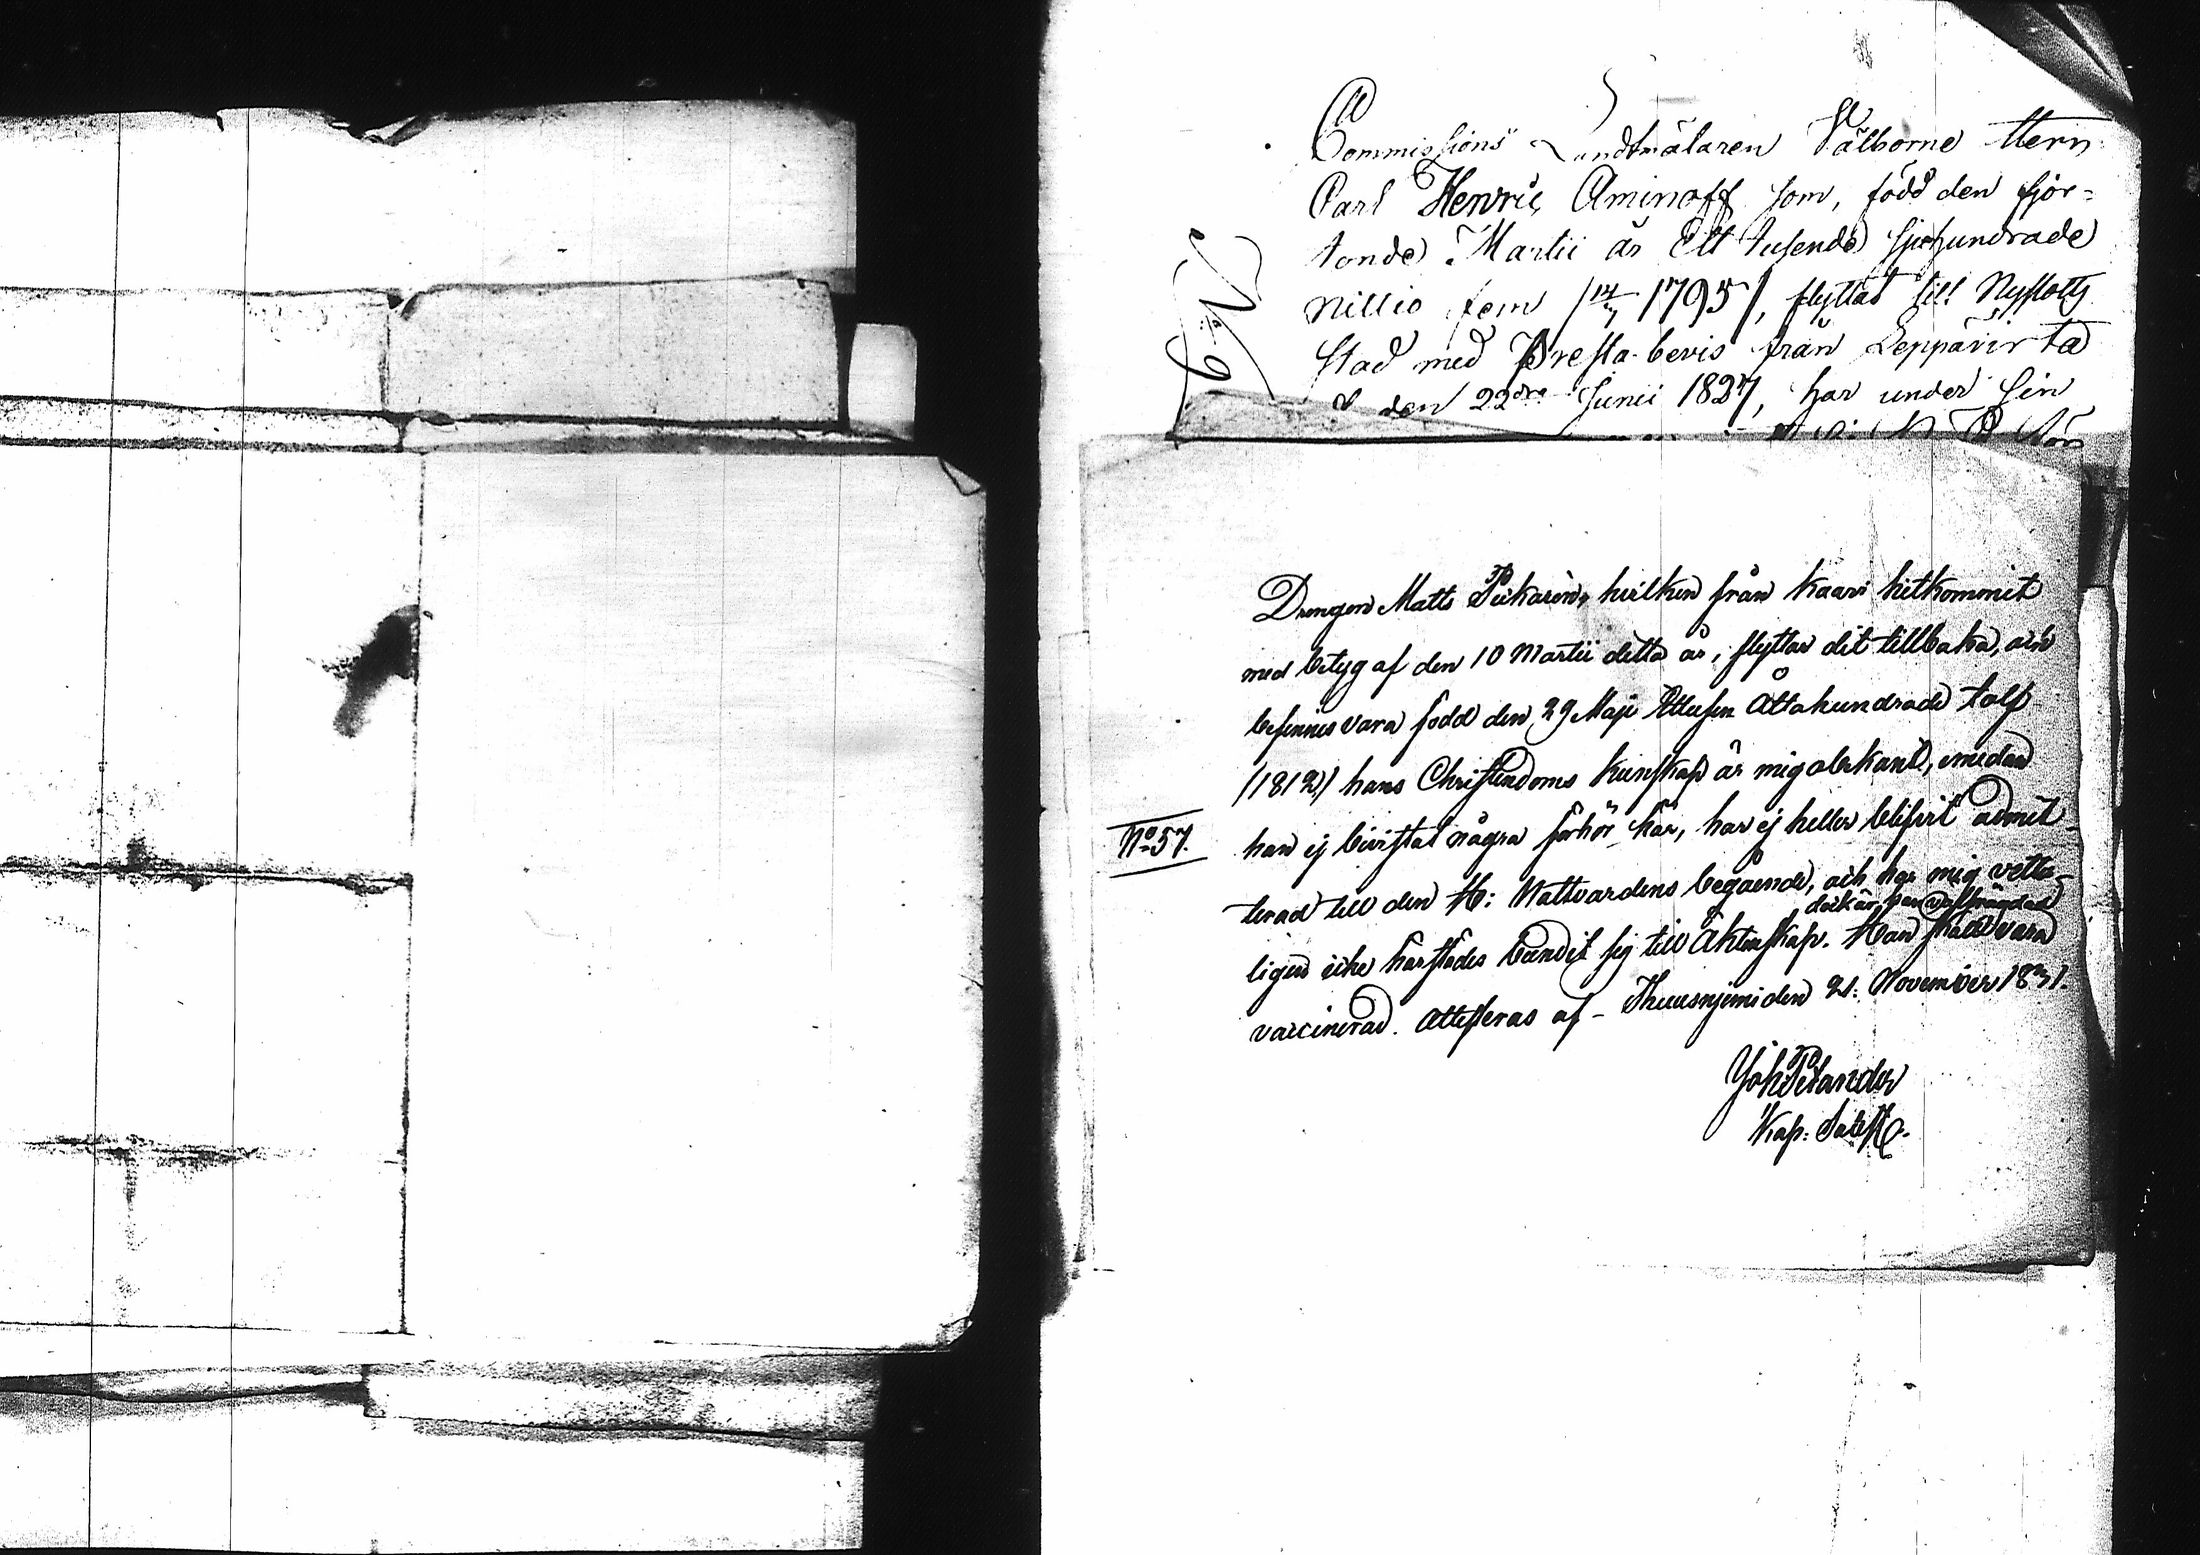 Commissions Landtmätaren Välborne Herr
Carl Henric Aminoff som, född den fjor=
tonde Martii år Ett tusende sjuhundrade
nittio fem /14/3 1795/, flyttat till Nyslotts
stad med Presta-bevis från Leppävirta
den 22dre Junii 1827, har under sin
Drengen Matts Pirkarin, hvilken från Kaavi hitkommit
med betyg af den 10 Martii detta år, flyttar dit tillbaka, och
befinnes vara född den 29 Maji Ettusen Åttahundrade tolf
/1812/ hans Christendoms kunskap är mig obekant, emedan
No 57.
han ej bivistat några förhör här, har ej heller blifvit admit-
terad till den H: Nattvardens begående, och har mig vetter-
dock är han välfrägdad
ligen icke härstädes bundit sig till Äktenskap. Han skall vara
vaccinerad. Attesteras af - Thuusnjemi den 21. November 1831.
Joh Pelander
Kap: